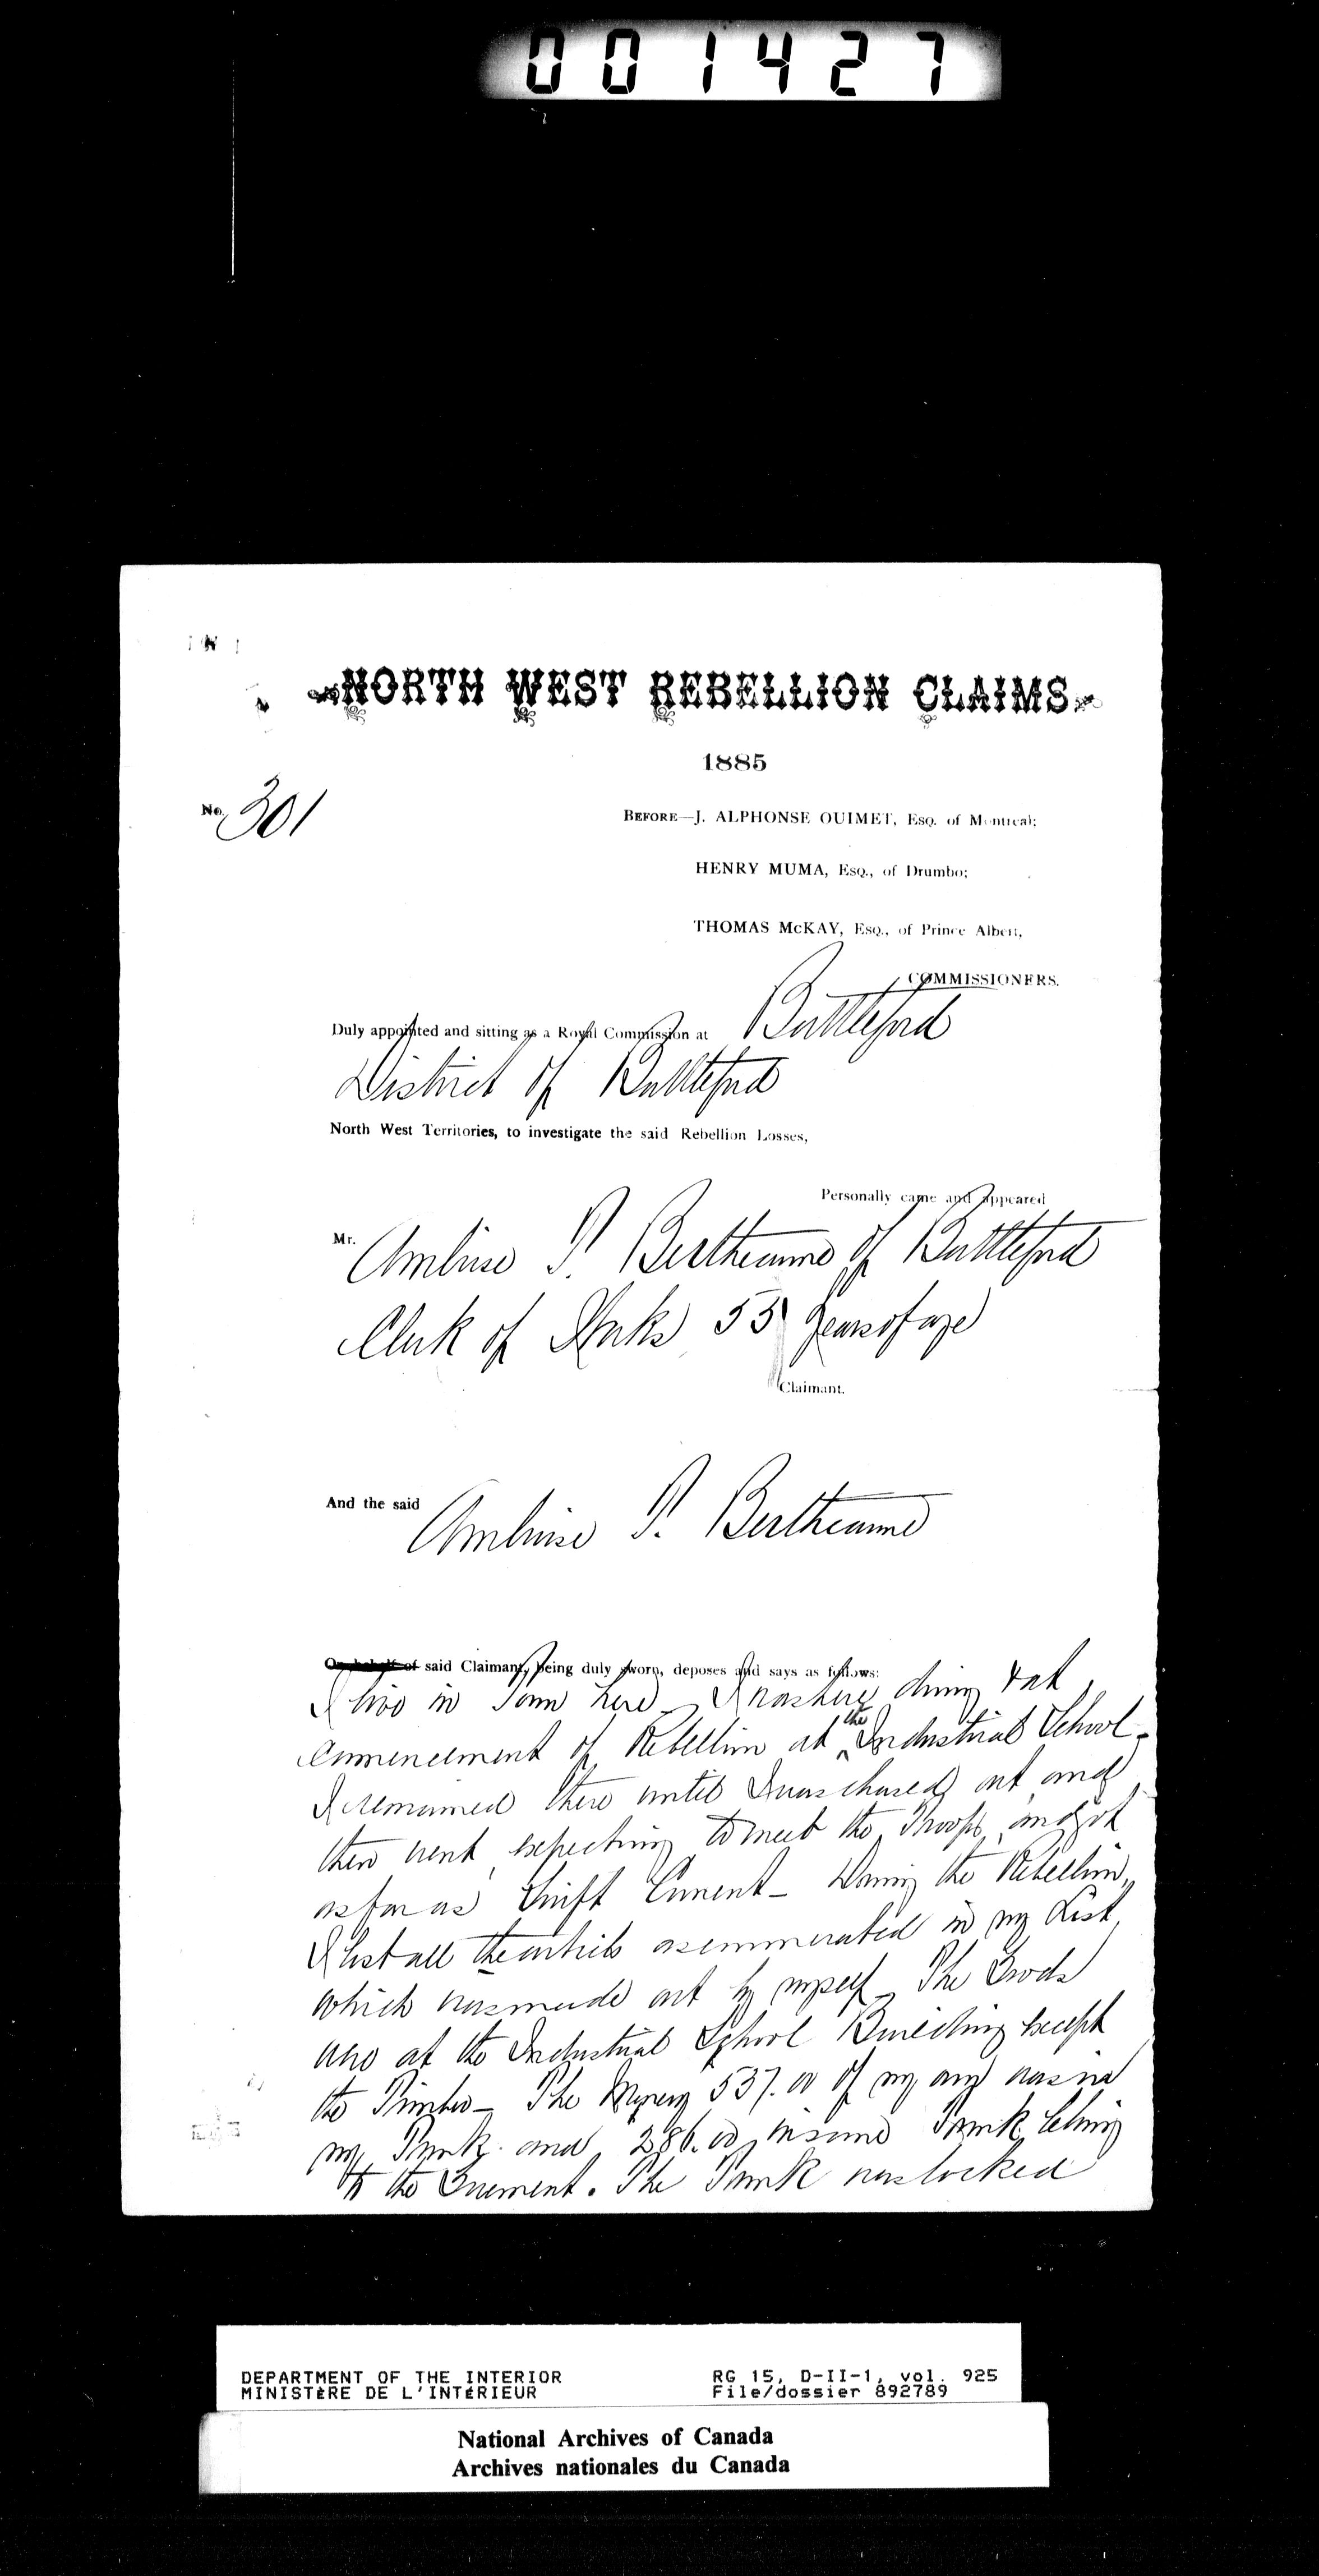 001427
NORTH WEST REBELLION CLAIMS.
1885
No. 301
BEFORE—J. ALPHONSE OUIMET, Esq. of Montreal;
HENRY MUMA, Esq., of Drumbo;
THOMAS McKAY, Esq., of Prince Albert,
COMMISSIONERS.
Duly appointed and sitting as a Royal Commission at Battleford
District of Battleford
North West Territories, to investigate the said Rebellion Losses,
Personally came and appeared
Mr. Ambroise P. Bertheaume of Battleford
Clerk of Works 55 years of age
Claimant.
And the said Ambroise P. Bertheaume
On behalf of said Claimant, being duly sworn, deposes and says as follows:
I live in Town here. I was here during & at
Commencement of Rebellion at the Industrial School.
I remained there until I was chased out and
then went expecting to meet the Troops and got
as far as Swift Current - During the Rebellion,
I lost all the articles as enumerated in my List
which was made out by myself. The Goods
was at the Industrial School Building except
the Timber - The Money 537.00 of my own was in
my Trunk and 286.00 in same Trunk belong
to the Government. The Trunk was locked
DEPARTMENT OF THE INTERIOR
MINISTÈRE DE L'INTÉRIEUR
RG 15, D-II-1, vol. 925
File/dossier 892789
National Archives of Canada
Archives nationales du Canada